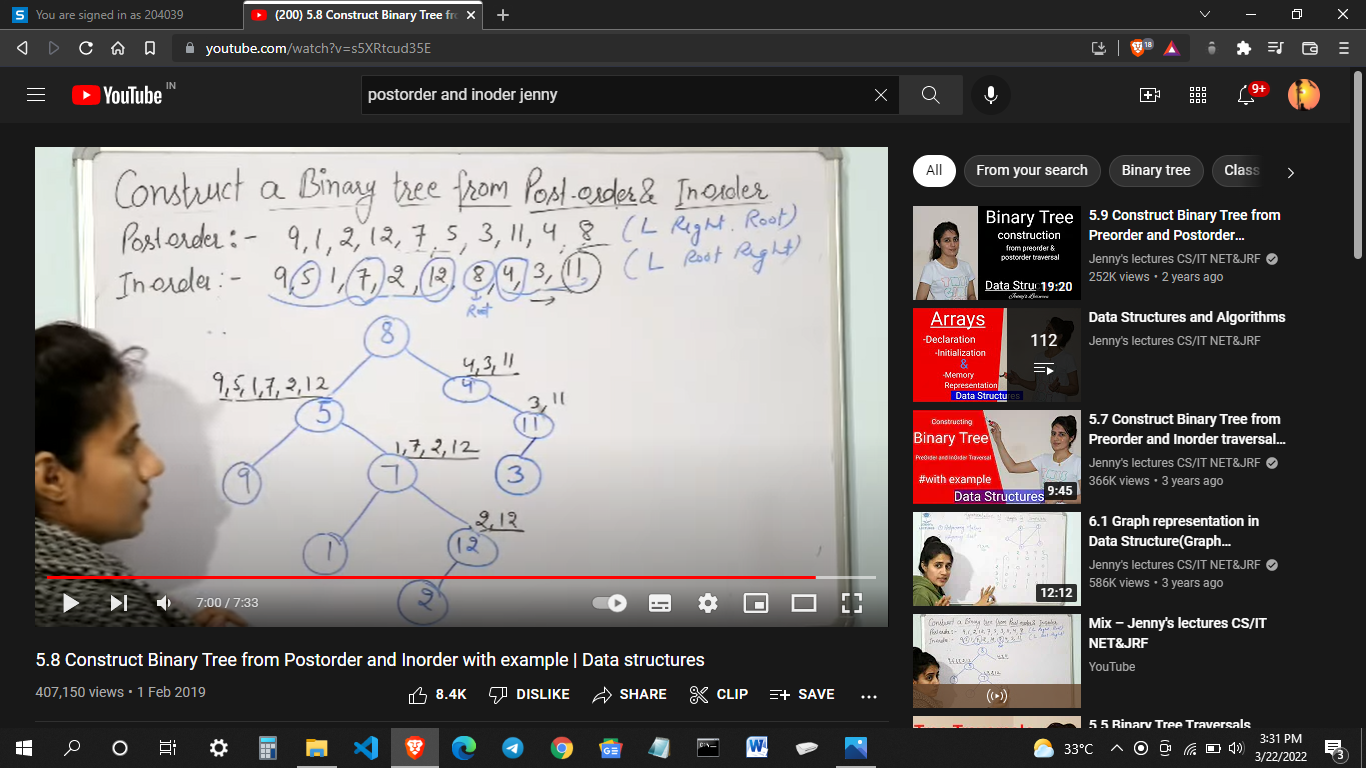 You are signed in as 204039
(200) 5.8 Construct Binary Tree fr
youtube.com/watch?v=s5XRtcud35E
18
YouTube IN
postorder and inoder jenny
9+
Construct a Binary tree from Post-order & Inorder
Postorder:- 9, 1, 2, 12, 7, 5, 3, 11, 4, 8 (L Right Root)
Inorder:- 9, 5, 1, 7, 2, 12, 8, 4, 3, 11 (L Root Right)
Root
8
4, 3, 11
9, 5, 1, 7, 2, 12
4
3, 11
5
11
1, 7, 2, 12
9
7
3
2, 12
1
12
2
7:00 / 7:33
5.8 Construct Binary Tree from Postorder and Inorder with example | Data structures
407,150 views • 1 Feb 2019
8.4K
DISLIKE
SHARE
CLIP
SAVE
All
From your search
Binary tree
Class
Binary Tree
construction
from preorder &
postorder traversal
Data Struc
Jenny's Lectures
19:20
5.9 Construct Binary Tree from
Preorder and Postorder…
Jenny's lectures CS/IT NET&JRF
252K views • 2 years ago
Arrays
-Declaration
-Initialization
&
-Memory
Representation
Data Structures
112
Data Structures and Algorithms
Jenny's lectures CS/IT NET&JRF
Constructing
Binary Tree
PreOrder and InOrder Traversal
#with example
Data Structures
9:45
5.7 Construct Binary Tree from
Preorder and Inorder traversal…
Jenny's lectures CS/IT NET&JRF
366K views • 3 years ago
12:12
6.1 Graph representation in
Data Structure(Graph…
Jenny's lectures CS/IT NET&JRF
586K views • 3 years ago
Construct a Binary tree from Post-order & Inorder
Mix – Jenny's lectures CS/IT
NET&JRF
YouTube
5.5 Binary Tree Traversals
33°C
3:31 PM
3/22/2022
3